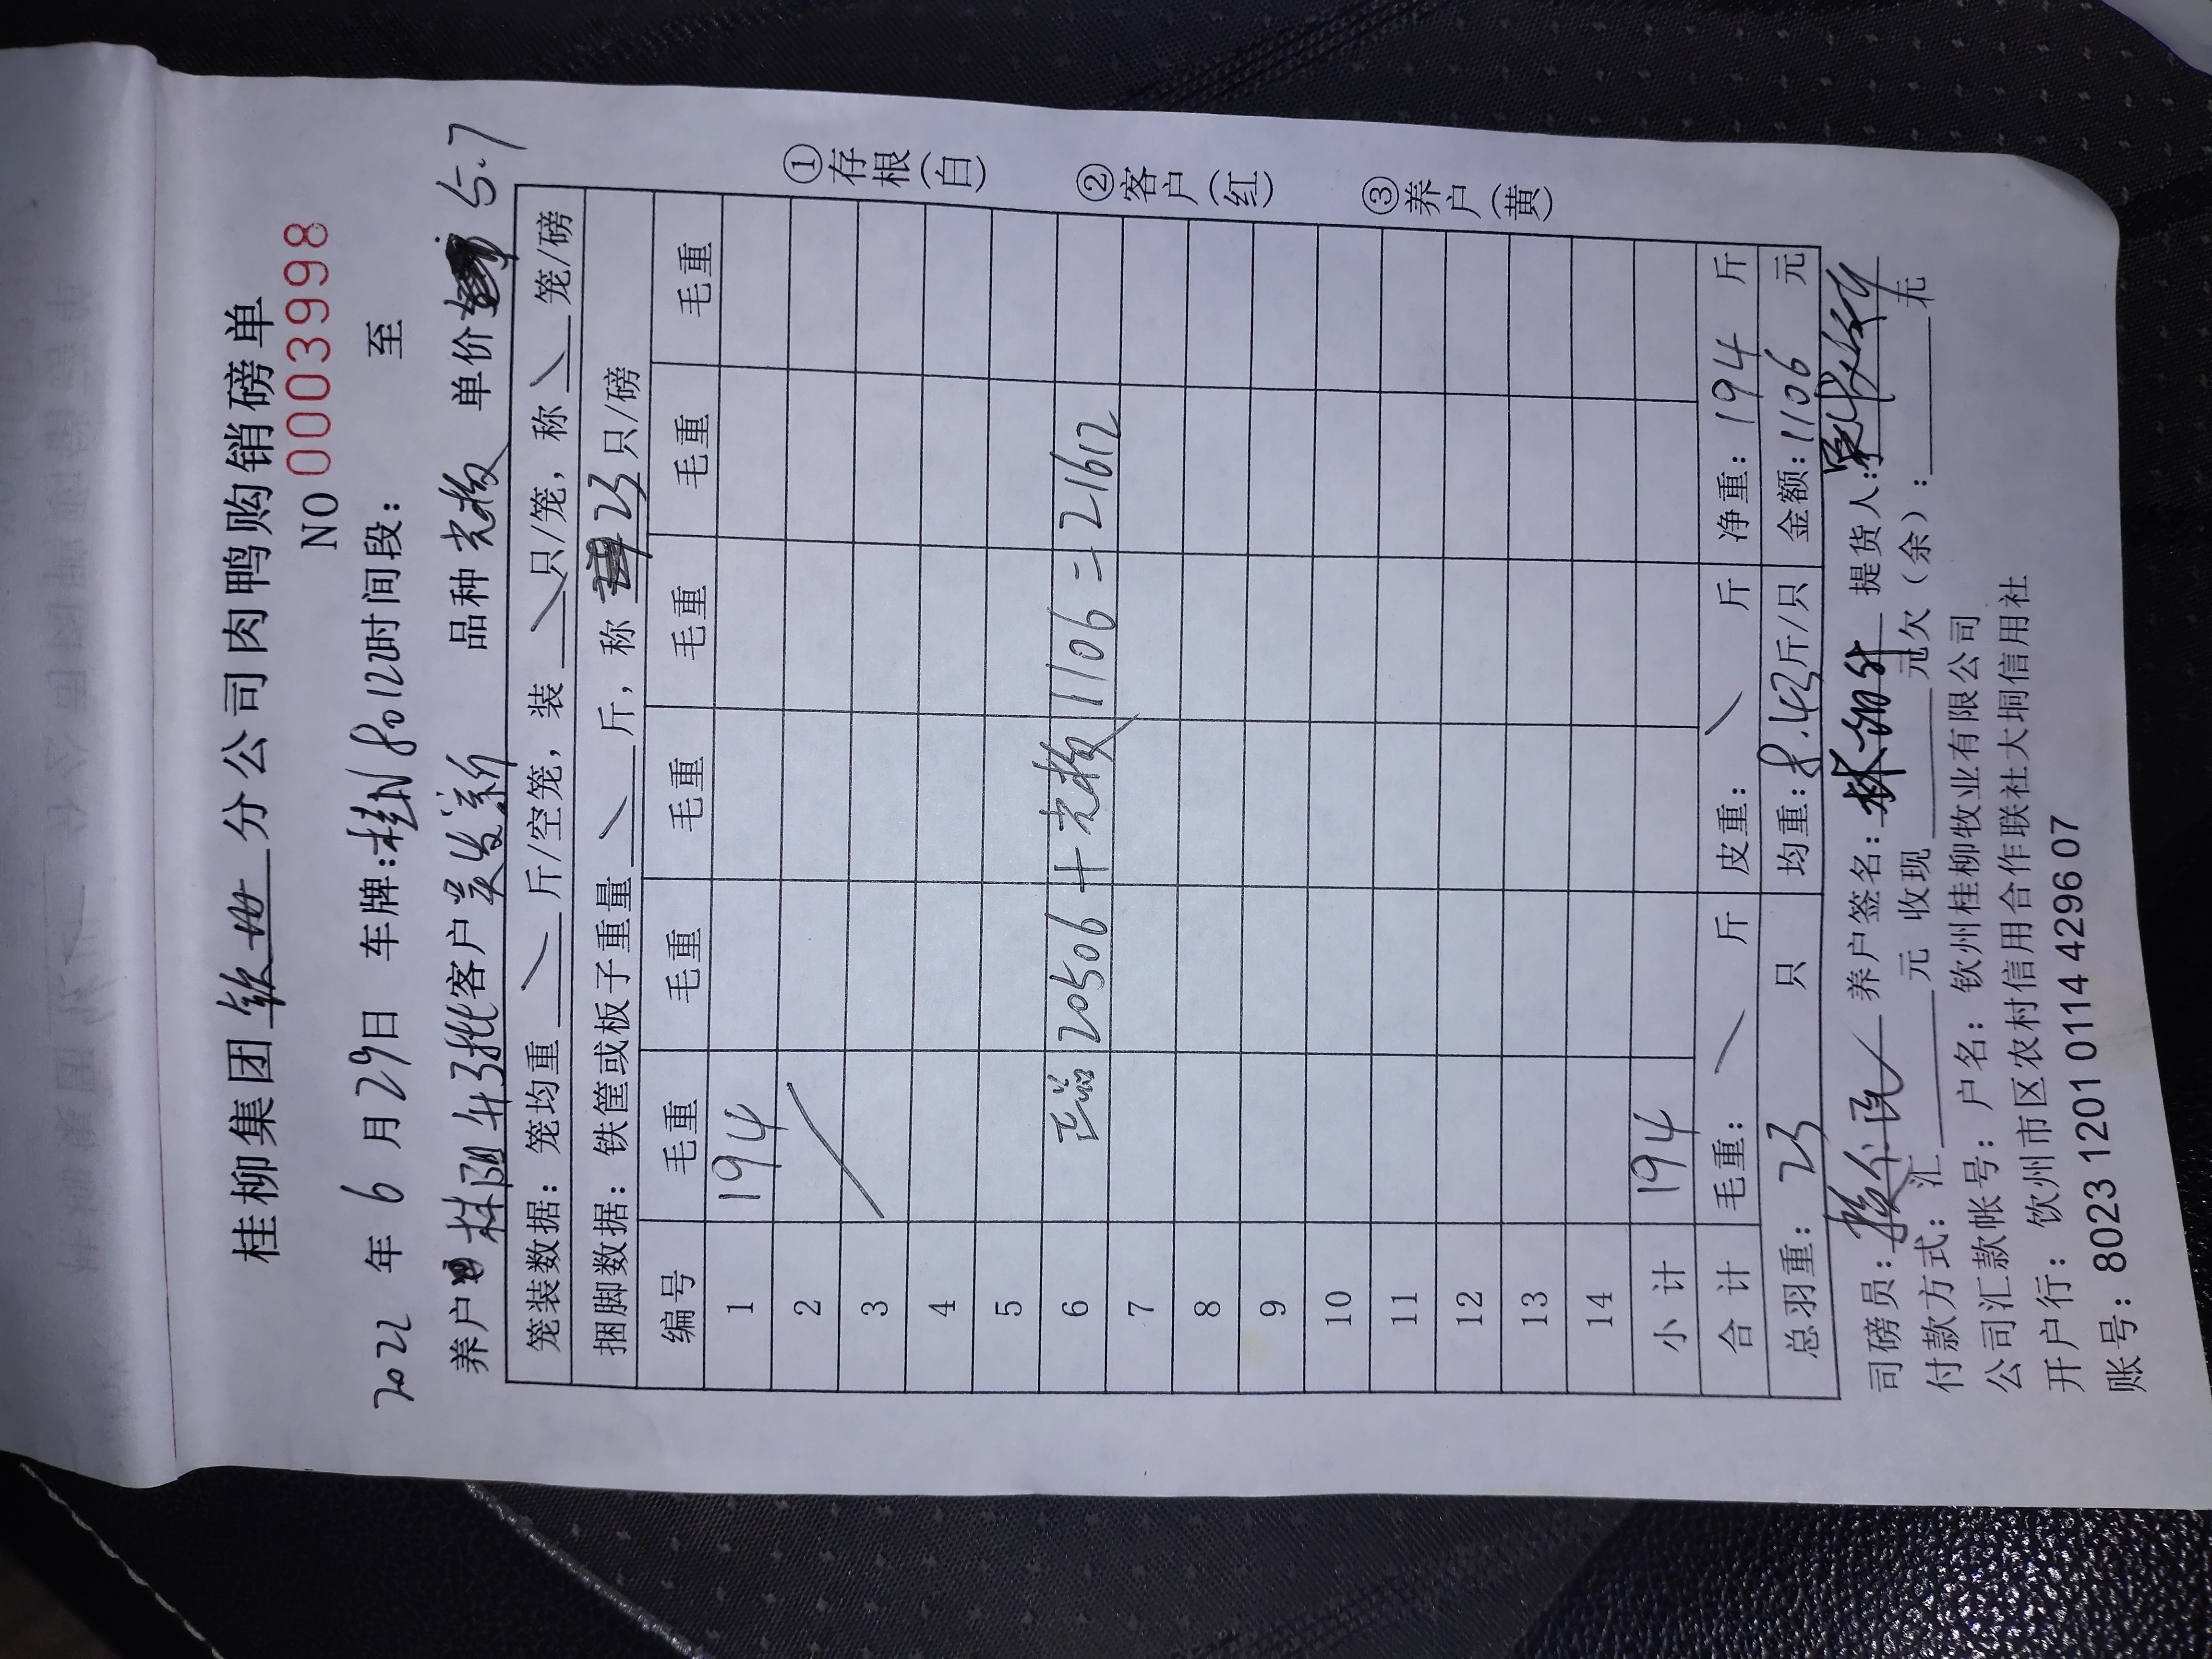 桂柳集团 钦州 分公司肉鸭购销磅单
NO 0003998
2022 年 6 月 29 日 车牌:桂N8012 时间段: 至
养户 林 批客户 吴发新 品种 光板 单价 5.7
笼装数据: 笼均重 \ 斤/空笼, 装 \ 只/笼, 称 \ 笼/磅
捆脚数据: 铁筐或板子重量 \ 斤, 称 23 只/磅
编号 毛重 毛重 毛重 毛重 毛重 毛重
1 194
2
3
4
5
6 正品 20506 + 光板 1106 = 21612
7
8
9
10
11
12
13
14
小计 194
合计 毛重: \ 斤 皮重: \ 斤 净重: 194 斤
总羽重: 23 只 均重: 8.43 斤/只 金额: 1106 元
①存根(白)
②客户(红)
③养户(黄)
司磅员: 养户签名: 林 提货人:
付款方式: 汇 元 收现 元欠(余): 元
公司汇款帐号: 户名: 钦州桂柳牧业有限公司
开户行: 钦州市区农村信用合作联社大垌信用社
账号: 8023 1201 0114 4296 07